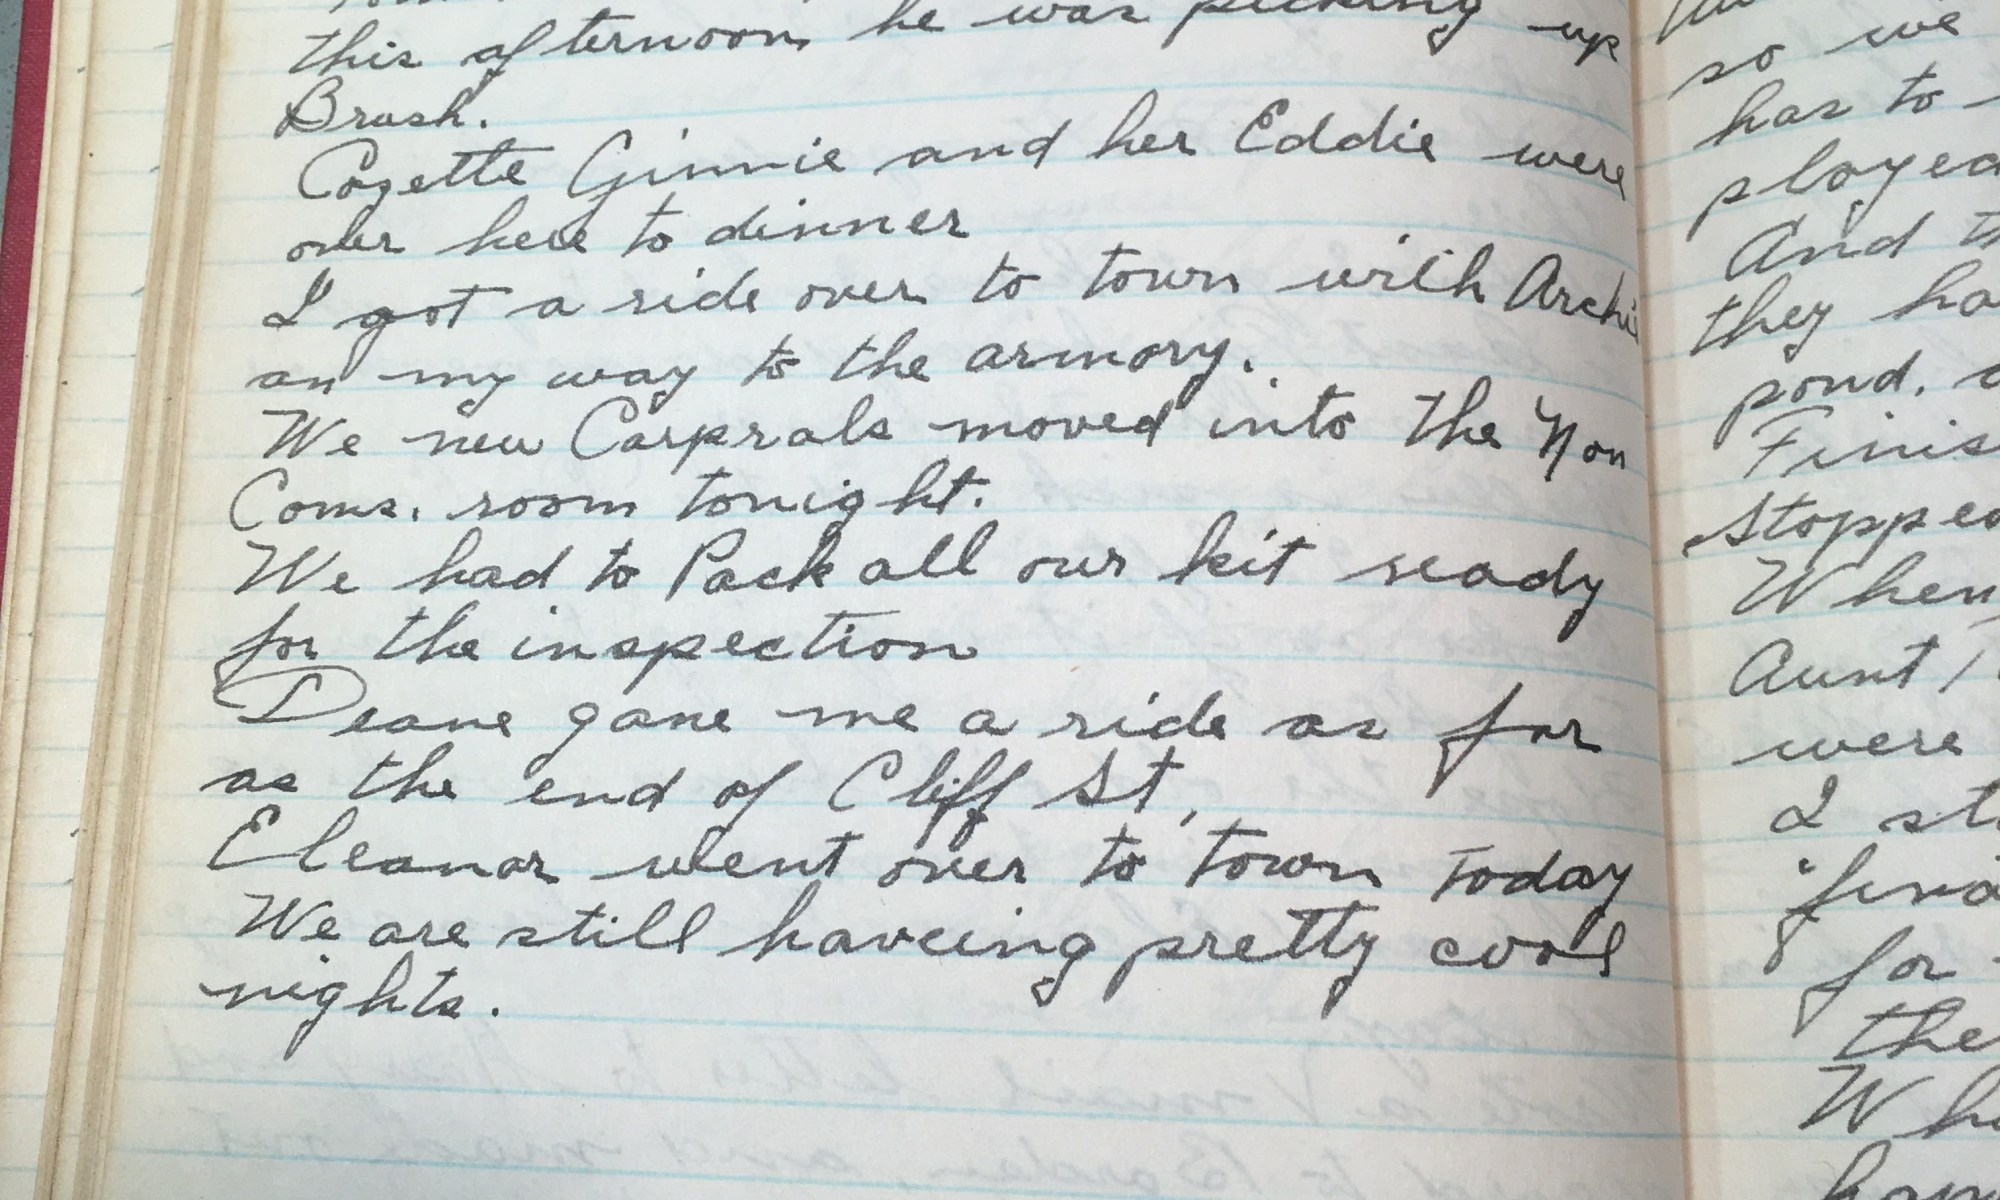 this afternoon he was picking up
Brush.
Cozette Ginnie and her Eddie were
over here to dinner
I got a ride over to town with Archi
on my way to the armory.
We new Corprals moved into the Non
Coms. room tonight.
We had to Pack all our kit ready
for the inspection
Deane gave me a ride as far
as the end of Cliff St,
Eleanor went over to town today
We are still haveing pretty cool
nights.
so we
has to
ployed
And th
they ha
pond.
Finis
Stopped
When
Aunt
were
I st
for
the
Wh